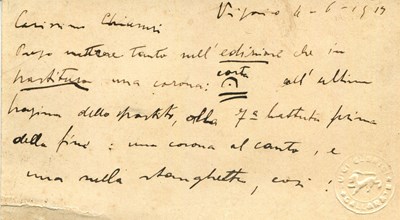 Viareggio 4-6-1919
Carissimo Clausetti
Prego mettere tanto nell'edizione che in
partitura una corona: carta all'ultima
pagina dello spartito, alla 7ª battuta prima
della fine: una corona al canto, e
una nella stanghetta, così: